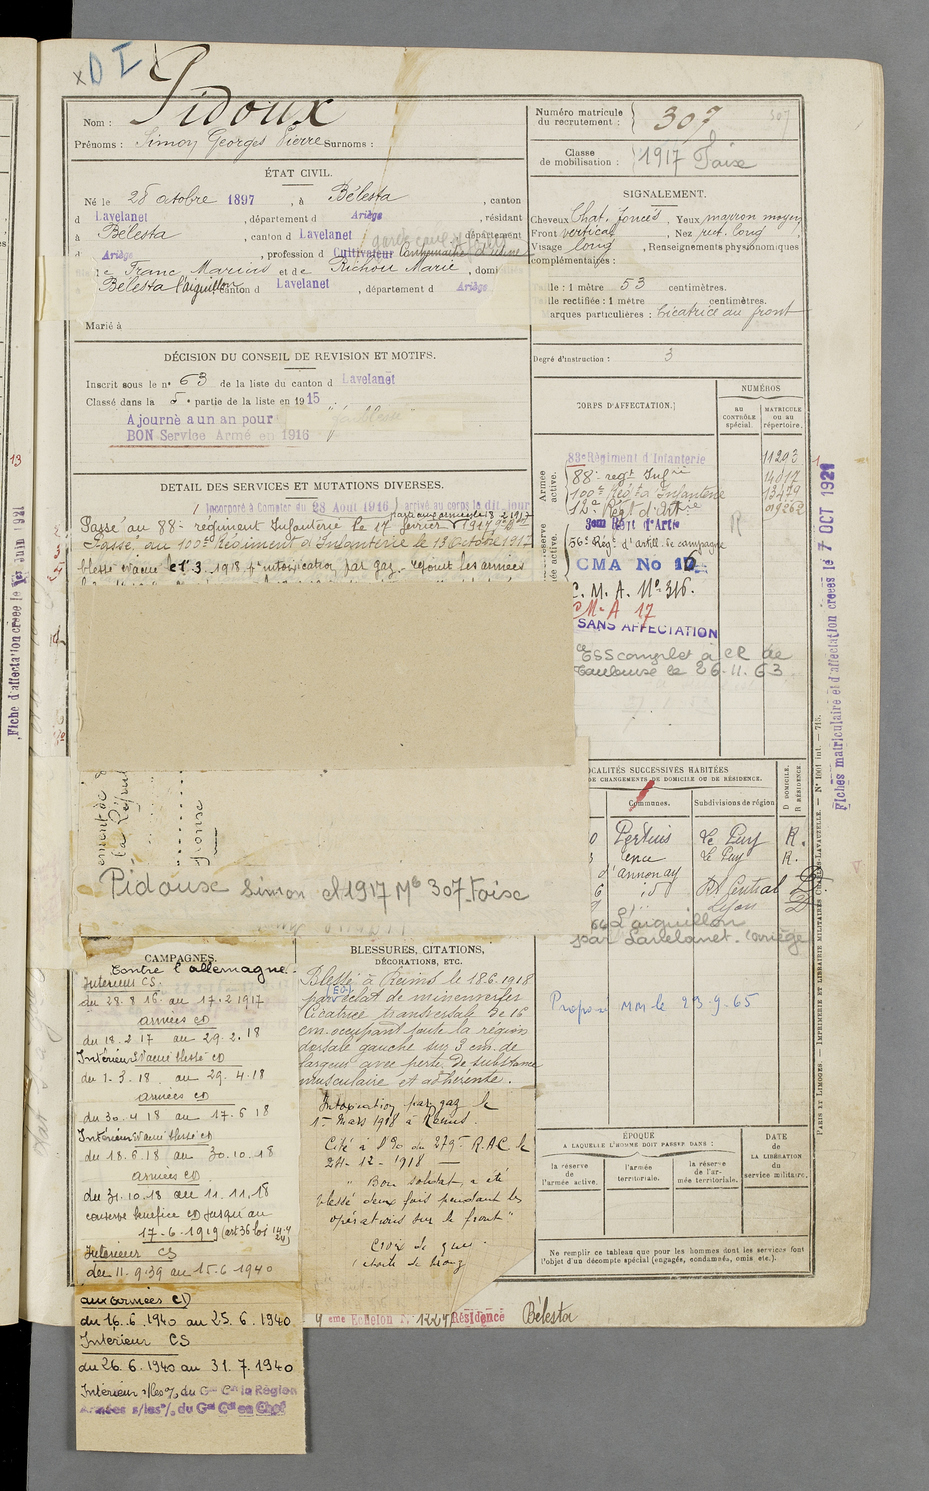 x D I
Nom : Pidoux
Prénoms : Simon Georges Pierre Surnoms :
ÉTAT CIVIL.
Né le 28 octobre 1897, à Bélesta, canton
d Lavelanet, département d Ariège, résidant
à Bélesta, canton d Lavelanet, département
d Ariège, profession d Cultivateur
de Franc Marius et de Richou Marie, domi
Bélesta l'aiguillon canton d Lavelanet, département d Ariège
Marié à
DÉCISION DU CONSEIL DE REVISION ET MOTIFS.
Inscrit sous le n° 63 de la liste du canton d Lavelanet
Classé dans la 5e partie de la liste en 1915
Ajourné a un an pour
BON Service Armé en 1916
DETAIL DES SERVICES ET MUTATIONS DIVERSES.
Incorporé à Compter du 28 Août 1916 arrivé au corps le dit jour
passé aux armées le 18.2.1917
Passé au 88e régiment Infanterie le 17 février 1917
Passé au 100e Régiment d'Infanterie le 13 Octobre 1917
blessé évacué le 1.3.1918 pr intoxication par gaz. rejoint les armées
ement de
la Répu
Pidoux Simon cl 1917 Mle 307 Foix
CAMPAGNES.
Contre l'allemagne.
Intérieur CS.
du 28.8.16 au 17.2.1917
armées CD
du 18.2.17 au 29.2.18
Intérieur Evacué blessé CD
du 1.3.18 au 29.4.18
armées CD
du 30.4.18 au 17.6.18
Intérieur Evacué blessé CD
du 18.6.18 au 30.10.18
armées CD
du 31.10.18 au 11.11.18
conserve bénéfice CD jusqu'au
17.6.1919 (art 36 loi
Intérieur CS
du 11.9.39 au 15.6.1940
aux armées CD
du 16.6.1940 au 25.6.1940
Intérieur CS
du 26.6.1940 au 31.7.1940
Intérieur s/les o/ du Gal Ct la Région
Armées s/les o/ du Gal Ct en Chef
BLESSURES, CITATIONS,
DÉCORATIONS, ETC.
Blessé à Reims le 18.6.1918
par éclat de minenwerfer
Cicatrice transversale de 16
cm. occupant toute la région
dorsale gauche sur 3 cm. de
largeur avec perte de substance
musculaire et adhérente.
Intoxication par gaz le
1er Mars 1918 à Reims.
Cité à l'O. du 279e R.A.C. le
24-12-1918
" Bon soldat, a été
blessé deux fois pendant les
opérations sur le front "
Croix de guer
étoile de bronz
4 eme Echelon N° Résidence Bélesta
Numéro matricule
du recrutement : 307
307
Classe
de mobilisation : 1917 Foix
SIGNALEMENT.
Cheveux Chat. foncés, Yeux marron moyen
Front vertical, Nez rect. long
Visage long, Renseignements physionomiques
complémentaires :
Taille : 1 mètre 53 centimètres.
Taille rectifiée : 1 mètre centimètres.
Marques particulières : Cicatrice au front
Degré d'instruction : 3
CORPS D'AFFECTATION.
NUMÉROS
au CONTRÔLE spécial.
MATRICULE ou au répertoire.
Armée active.
83e Régiment d'Infanterie 11293
88e régt Infrie 14017
100e Régt d'Infanterie 13479
12e Régt d'Artrie 019262
3em Rég' d'Artie
56e Régt d'artill. de campagne
R
CMA No 16
C.M.A. N° 316.
C.M.A 17
SANS AFFECTATION
ESS complet à CR de
Toulouse le 26.11.63
LOCALITÉS SUCCESSIVES HABITÉES
DE CHANGEMENTS DE DOMICILE OU DE RÉSIDENCE.
Communes.
Subdivisions de région
D DOMICILE.
R RÉSIDENCE
Pertuis Le Puy R.
Le Puy R.
annonay
id
Lyon D
L'aiguillon
par Lavelanet. Ariège
Proposé MM le 23.9.65
ÉPOQUE
A LAQUELLE L'HOMME DOIT PASSER DANS :
la réserve de l'armée active.
l'armée territoriale.
la réserve de l'armée territoriale.
DATE
de
LA LIBÉRATION
du
service militaire.
Ne remplir ce tableau que pour les hommes dont les services font
l'objet d'un décompte spécial (engagés, condamnés, omis etc.).
PARIS ET LIMOGES. — IMPRIMERIE ET LIBRAIRIE MILITAIRES CHARLES-LAVAUZELLE. — N° 1001 int. — 715.
Fiches matriculaire et d'affectation créées le 7 OCT 1921
Fiche d'affectation créée le 1er Juin 1921
13